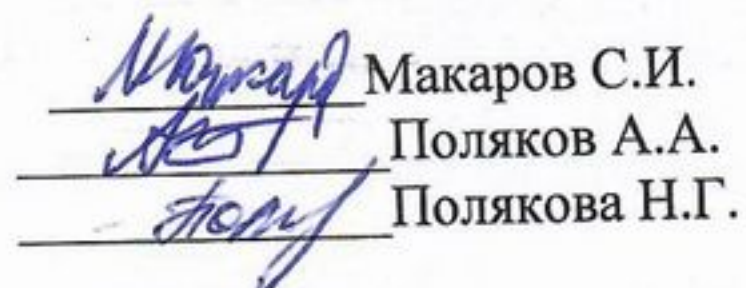 Макаров С.И.
Поляков А.А.
Полякова Н.Г.